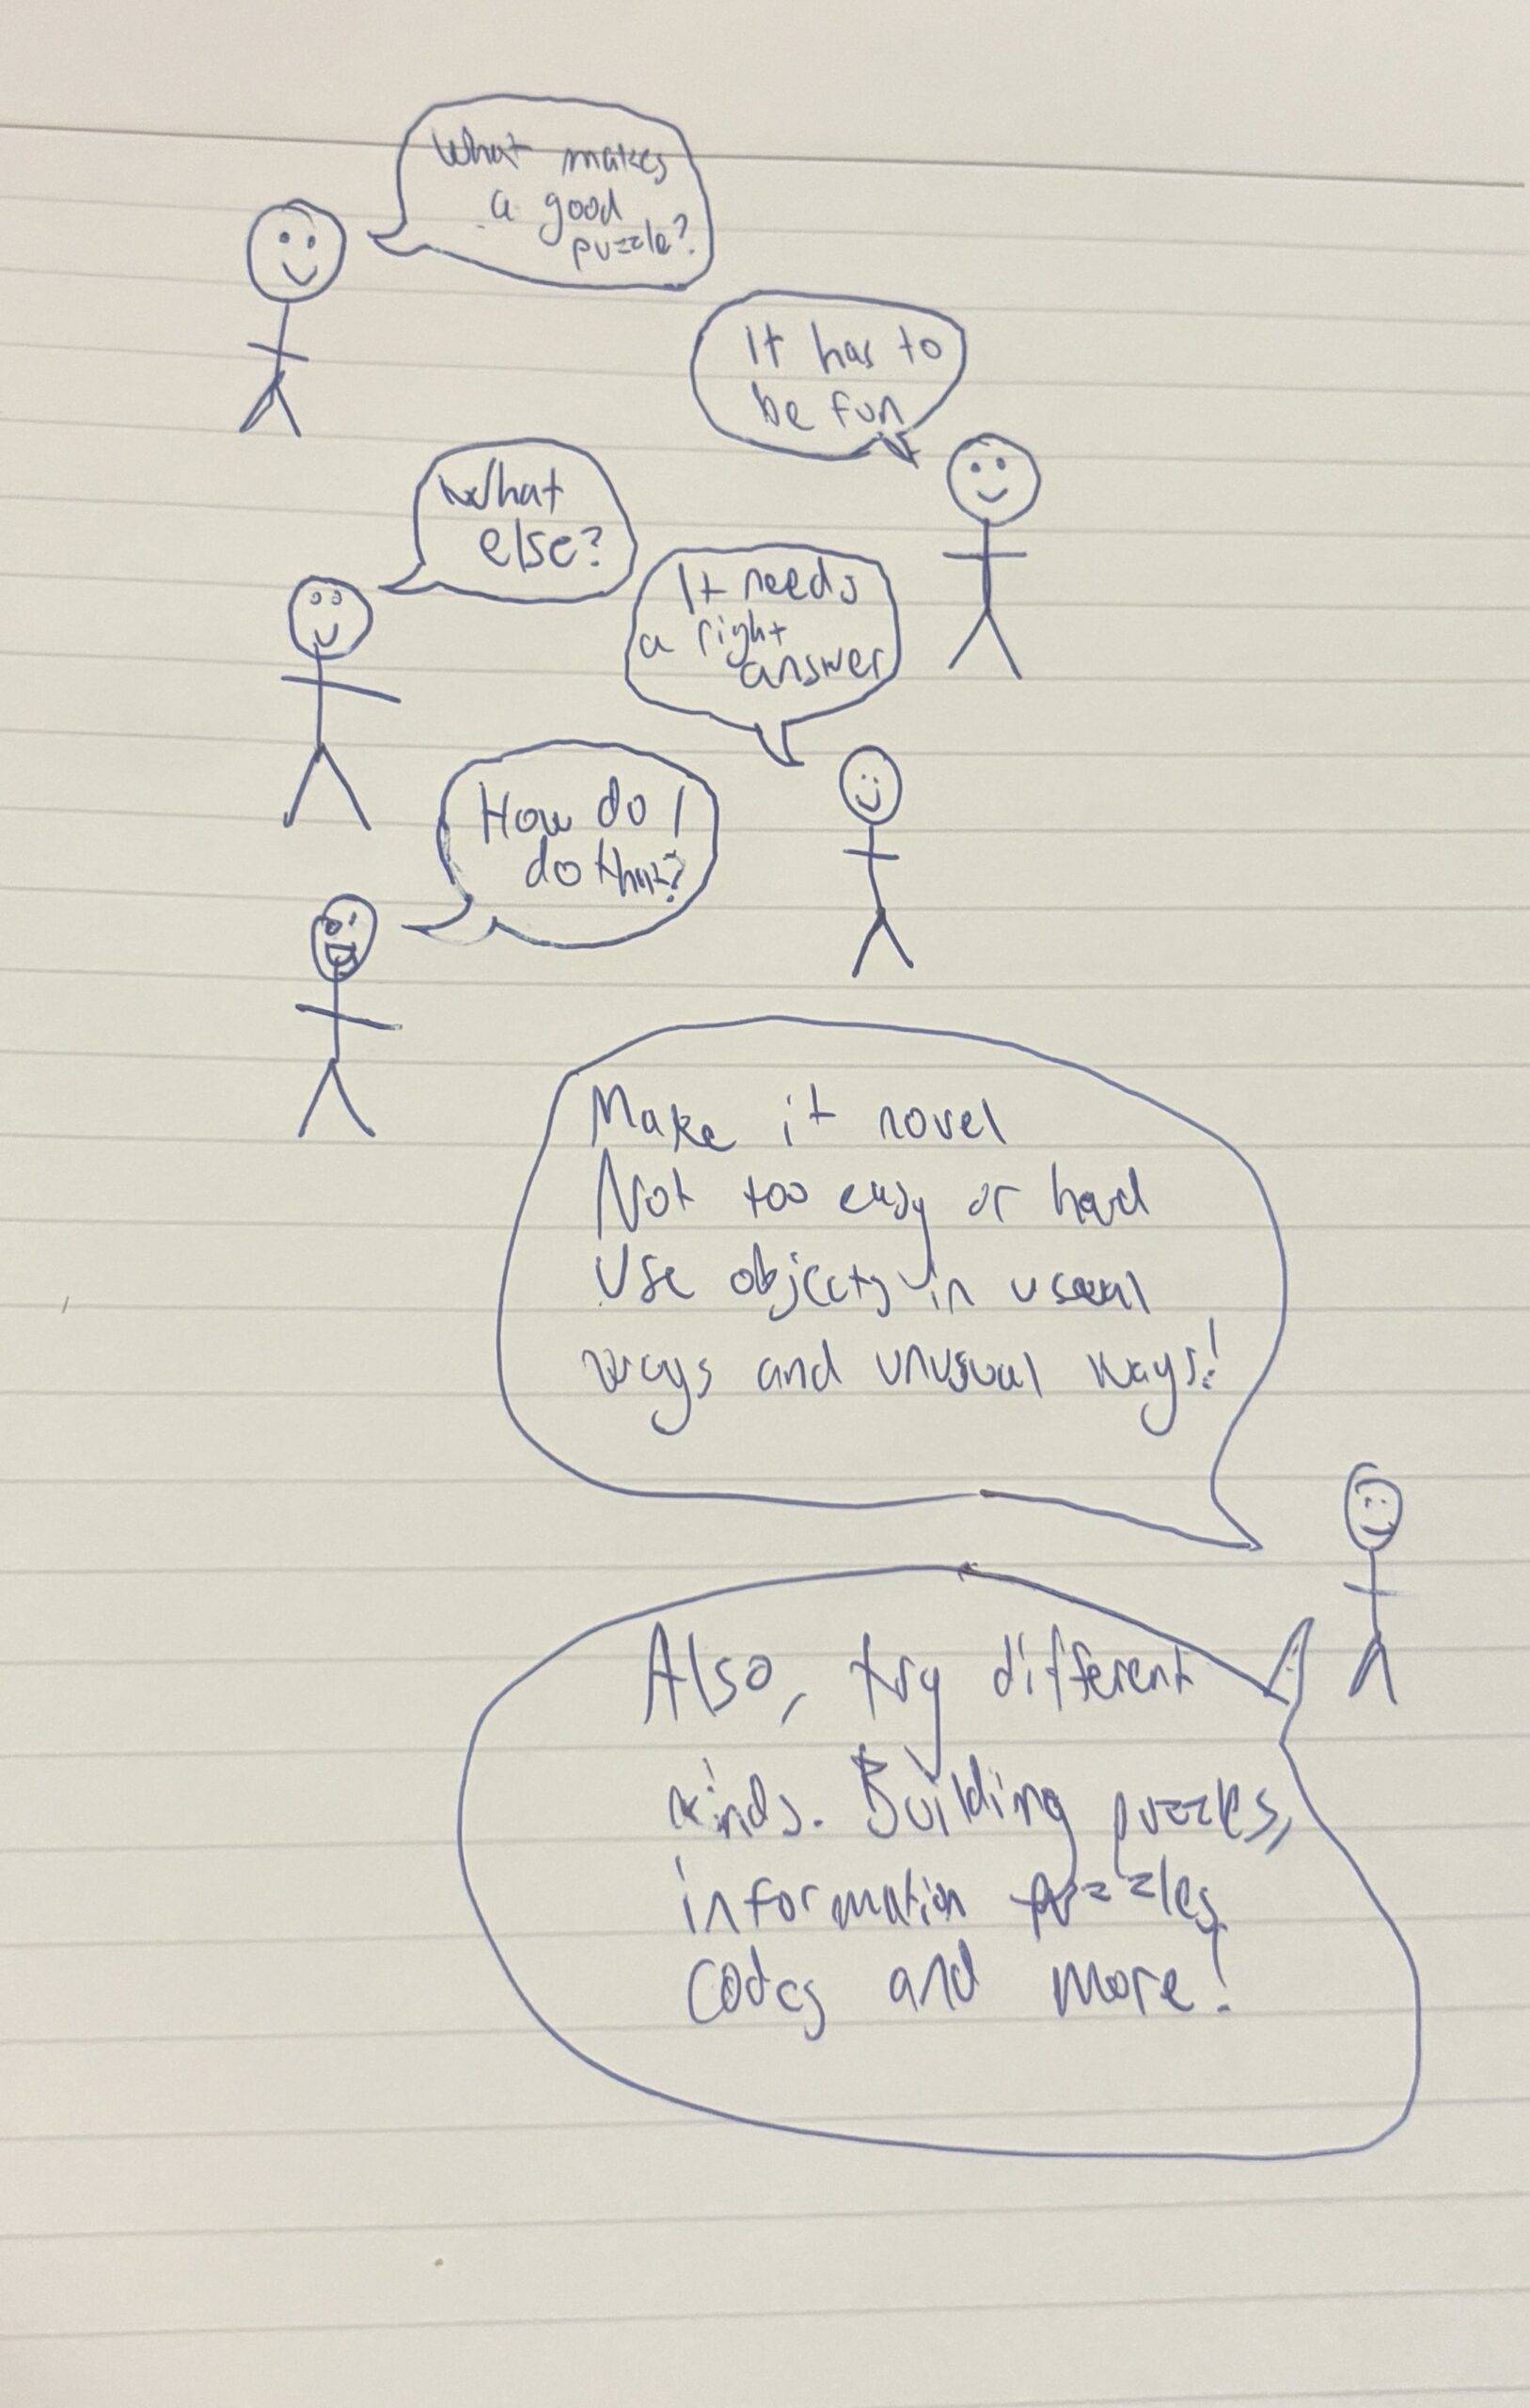 What makes
a good
puzzle?
It has to
be fun
What
else?
It needs
a right
answer
How do I
do that?
Make it novel
Not too easy or hard
Use objects in usual
ways and unusual ways!
Also, try different
kinds. Building puzzles,
information puzzles,
codes and more!